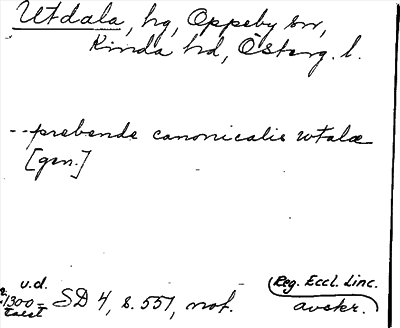 Utdala, hg, Oppeby sn,
Kinda hd, Österg. l.
--prebende canonicalis wtalæ
[gen.]
u.d.
1300-
talet
SD 4, s. 551, not.
Reg. Eccl. Linc.
avskr.